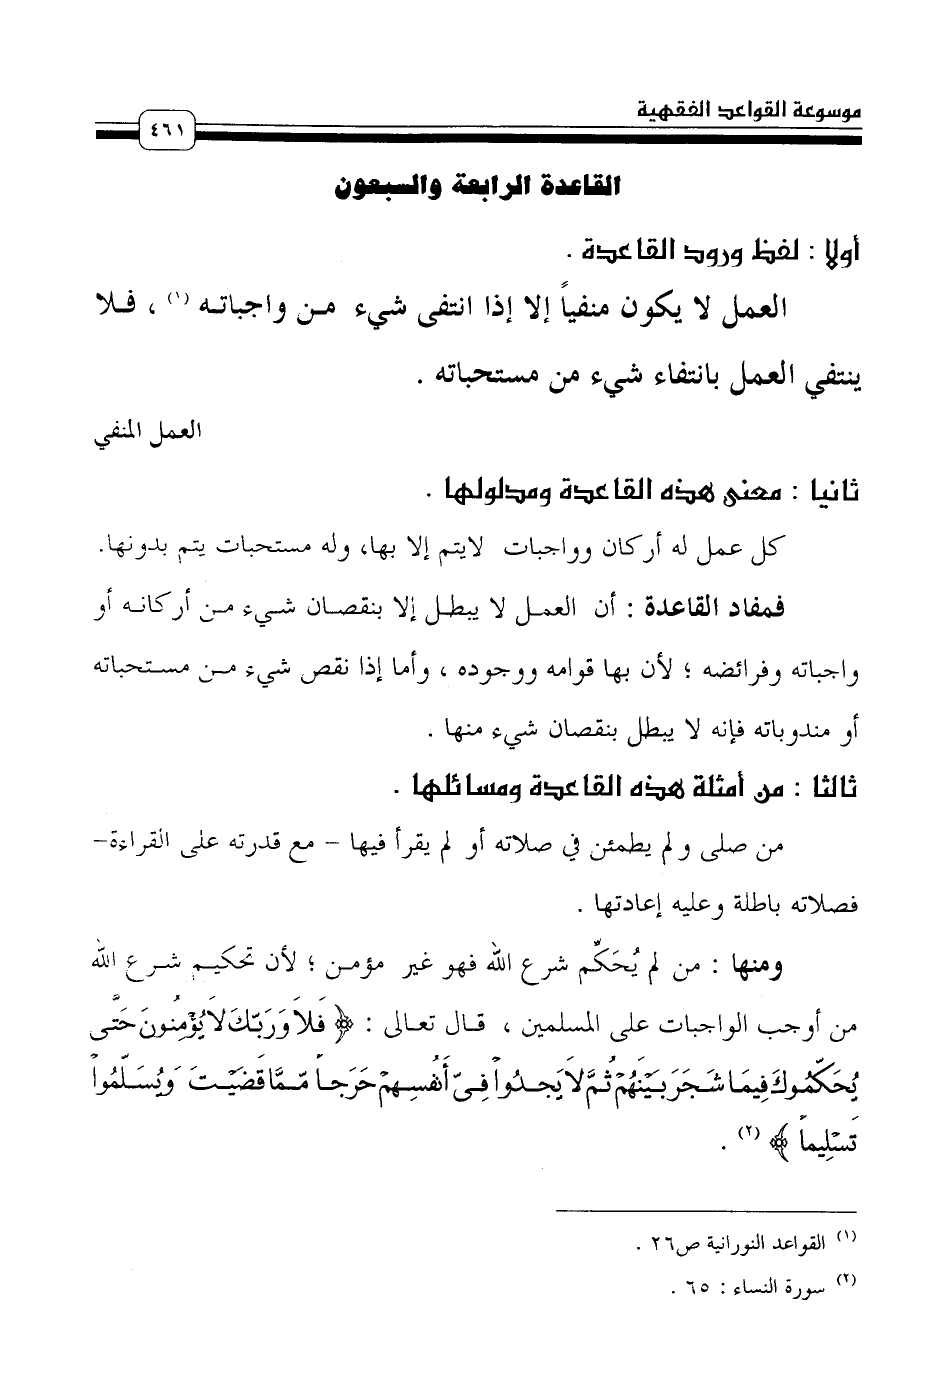 موسوعة القواعد الفقهية
٤٦١
القاعدة الرابعة والسبعون
أولا : لفظ ورود القاعدة .
العمل لا يكون منفياً إلا إذا انتفى شيء من واجباته (١) ، فلا
ينتفي العمل بانتفاء شيء من مستحباته .
العمل المنفي
ثانيا : معنى هذه القاعدة ومدلولها .
كل عمل له أركان وواجبات لايتم إلا بها، وله مستحبات يتم بدونها.
فمفاد القاعدة : أن العمل لا يبطل إلا بنقصان شيء من أركانه أو
واجباته وفرائضه ؛ لأن بها قوامه ووجوده ، وأما إذا نقص شيء من مستحباته
أو مندوباته فإنه لا يبطل بنقصان شيء منها .
ثالثا : من أمثلة هذه القاعدة ومسائلها .
من صلى ولم يطمئن في صلاته أو لم يقرأ فيها – مع قدرته على القراءة–
فصلاته باطلة وعليه إعادتها .
ومنها : من لم يُحَكِّم شرع الله فهو غير مؤمن ؛ لأن تحكيم شرع الله
من أوجب الواجبات على المسلمين ، قال تعالى : ﴿ فَلاَ وَرَبِّكَ لاَ يُؤْمِنُونَ حَتَّى
يُحَكِّمُوكَ فِيمَا شَجَرَ بَيْنَهُمْ ثُمَّ لاَ يَجِدُواْ فِىٓ أَنفُسِهِمْ حَرَجاً مِّمَّا قَضَيْتَ وَيُسَلِّمُواْ
تَسْلِيماً ﴾ (٢) .
(١) القواعد النورانية ص٢٦ .
(٢) سورة النساء : ٦٥ .